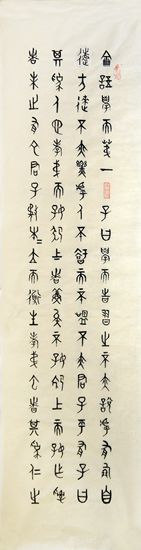 侖語學而弟一 子曰學而時習之不亦說乎有朋自
遠方來不亦樂乎人不知而不慍不亦君子乎有子曰
其為人也孝弟而好犯上者鮮矣不好犯上而好作亂
者未之有也君子務本=立而道生孝弟也者其為仁之